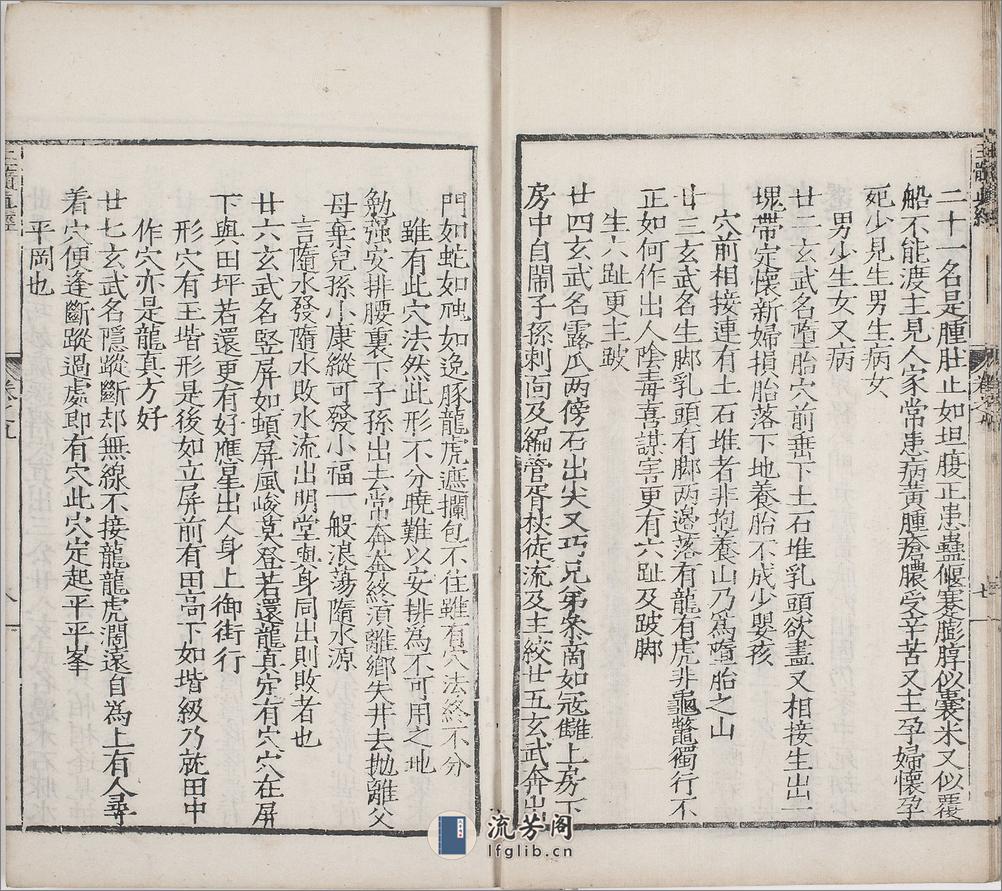 二十一名是腫肚止如坦腹正患蠱偃蹇膨脝似囊米又似覆
船不能渡主見人家常患病黃腫瘡膿受辛苦又主孕婦懷孕
死少見生男生病女
男少生女又病
廿二玄武名墮胎穴前垂下土石堆乳頭欲盡又相接生出一
塊帶定懷新婦損胎落下地養胎不成少嬰孩
穴前相接連有土石堆者非抱養山乃為墮胎之山
廿三玄武名生脚乳頭有脚两邊落有龍有虎非龜鼈獨行不
正如何作出人陰毒喜謀害更有六趾及跛脚
生六趾更主跛
廿四玄武名露瓜两傍石出尖又巧兄弟条商如冦讎上房下
房中自鬧子孫刺面及編管胥杖徒流及主絞廿五玄武奔出
門如蛇如䖳如逸豚龍虎遮攔包不住雖有穴法終不分
雖有此穴法然此形不分曉難以安排為不可用之地
勉强安排腰裏下子孫出去常奔奔終須離鄉失井去抛離父
母棄兒孫小康縱可發小福一般浪蕩隨水源
言隨水發隨水敗水流出明堂與身同出則敗者也
廿六玄武名竪屏如頓屏風峻莫登若還龍真定有穴穴在屏
下與田坪若還更有好應星出人身上御街行
形穴有王堦形是後如立屏前有田高下如堦級乃就田中
作穴亦是龍真方好
廿七玄武名隱蹤斷却無線不接龍龍虎濶遠自為上有人尋
着穴便逢斷蹤過處即有穴此穴定起平平峯
平岡也
卷之九
八
七
流芳阁
lfglib.cn